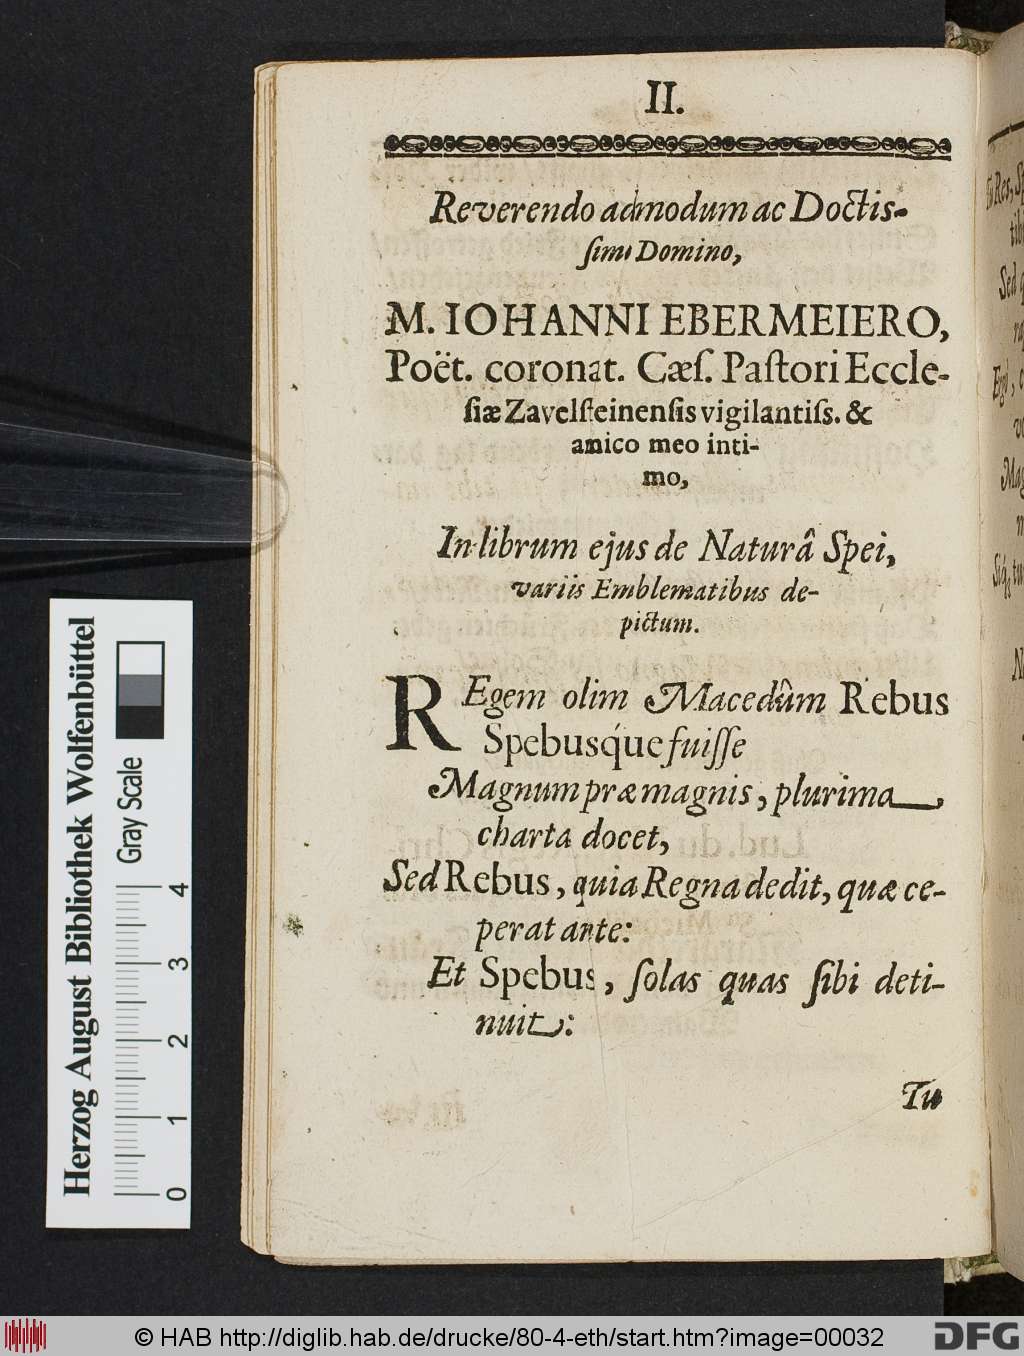 II.
Reverendo admodum ac Doctis-
simo Domino,
M. IOHANNI EBERMEIERO,
Poët. coronat. Cæſ. Paſtori Eccle-
ſiæ Zavelſteinenſis vigilantiſs. &
amico meo inti-
mo,
In librum ejus de Naturâ Spei,
variis Emblematibus de-
pictum.
REgem olim Macedûm Rebus
Spebusq́ue fuiſſe
Magnum præ magnis, plurima
charta docet,
Sed Rebus, quia Regna dedit, quæ ce-
perat ante:
Et Spebus, ſolas quas ſibi deti-
nuit:
Tu
Herzog August Bibliothek Wolfenbüttel
Gray Scale
0 1 2 3 4
© HAB http://diglib.hab.de/drucke/80-4-eth/start.htm?image=00032
DFG